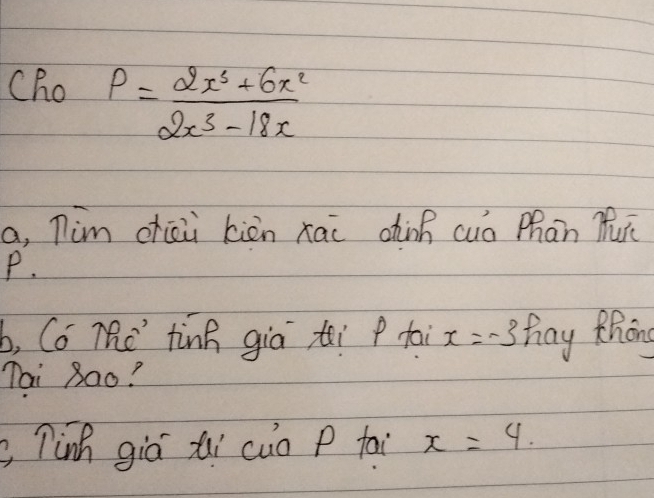 Cho P = \frac{2x^3 + 6x^2}{2x^3 - 18x}
a, Tìm điều kiện xác định của phân thức
P.
b, Có thể tính giá trị P tại x = -3 hay không
Tại sao?
c, Tính giá trị của P tại x = 4.